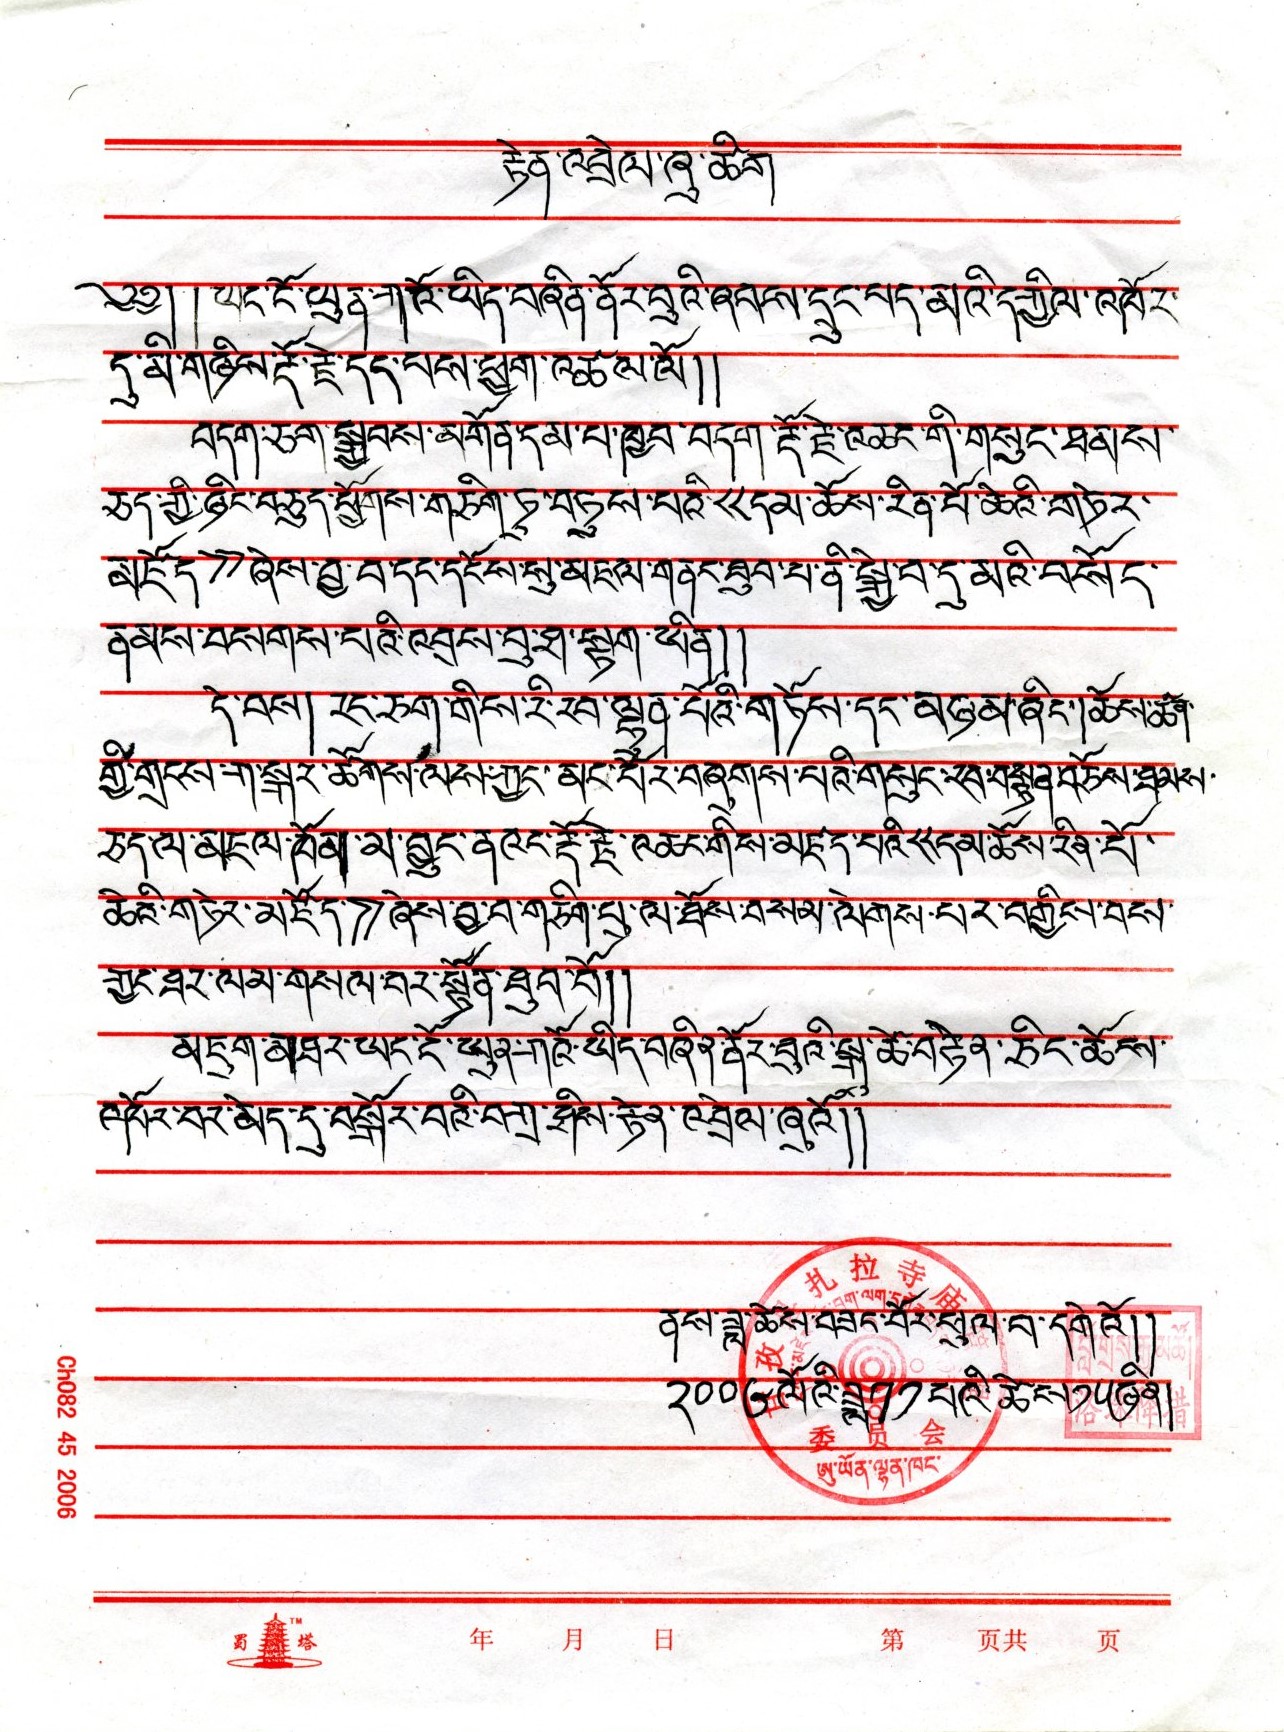 རྟེན་འབྲེལ་ཞུ་ཚིག
༄༅། །ཡང་ངོ་ཡུན་ཀའོ་ཡིད་བཞིན་ནོར་བུའི་ཞབས་དྲུང་པད་མའི་དཀྱིལ་འཁོར་
དུ་མི་གཉིས་རྡོ་རྗེ་དད་པས་ཕྱག་འཚལ་ལོ།།
བདག་ཅག་སྐྱབས་མགོན་དམ་པ་ཁྱབ་བདག་རྡོ་རྗེ་འཆང་གི་གསུང་ཐམས་
ཅད་ཀྱི་ཉིང་བཅུད་ཕྱོགས་གཅིག་ཏུ་བཏུས་པའི་《དམ་ཆོས་རིན་པོ་ཆེའི་གཏེར་
མཛོད》ཞེས་བྱ་བ་དང་དངོས་སུ་མཇལ་གནང་ཐུབ་པ་ནི་སྐྱེ་བ་དུ་མའི་བསོད་
ནམས་བསགས་པའི་འབྲས་བུ་ཤ་སྟག་ཡིན།།
དེ་བས། རང་ཅག་གིས་རི་རབ་ལྷུན་པོའི་གཏོས་དང་མཉམ་ཞིང་།ཆོས་ཚན་
གྱི་གྲངས་ཀ་སྐར་ཚོགས་ལས་ཀྱང་མང་པོར་བཞུགས་པའི་གསུང་རབ་བསྟན་བཅོས་ཐམས་
ཅད་ལ་མཇལ་ཁོམ། མ་བྱུང་ནའང་རྡོ་རྗེ་འཆང་གིས་མཛད་པའི《དམ་ཆོས་རིན་པོ་
ཆེའི་གཏེར་མཛོད》ཞེས་བྱ་བ་གཅིག་པུ་ལ་ཐོས་བསམ་ལེགས་པར་བགྱིས་བས་
ཀྱང་ཐར་ལམ་གསལ་བར་སྟོན་ཐུབ་བོ།།
མཇུག་མཐར་ཡང་ངོ་ཡུན་ཀའོ་ཡིད་བཞིན་ནོར་བུའི་སྐུ་ཚེ་བརྟེན་ཅིང་ཆོས་
འཁོར་བར་མེད་དུ་བསྐོར་བའི་བཀྲ་ཤིས་རྟེན་འབྲེལ་ཞུའོ།།
ནས་ཟླ་ཚེས་བཟང་པོར་ཕུལ་བ་དགེའོ།།
༢༠༠༦ལོའི་ཟླ༡༡པའི་ཚེས༡༥ཉིན།
扎拉寺庙
孜
委员会
ཨུ་ཡོན་ལྷན་ཁང་
Ch082 45 2006
蜀塔 TM
年 月 日 第 页共 页